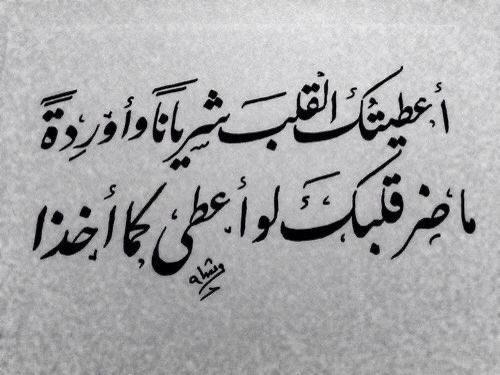 أعطيتُك القلبَ شرياناً وأوردةً
ما ضر قلبك لو أعطى كما أخذا